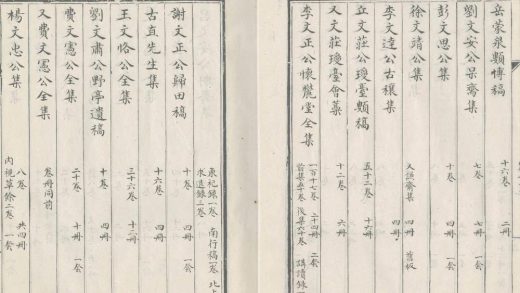 岳蒙泉類博稿 十六卷 二冊
劉文安公呆齋集 七卷 一冊
彭文思公集 十卷 二冊
徐文靖公集 又謙齋集 四冊 舊板
李文達公古穰集 四冊
丘文莊公瓊臺類稿 五十二卷 十六冊
又文莊瓊臺會藁 十二卷 六冊
李文正公懷麓堂全集 一百十七卷 二十四冊 二套
後集六十卷 講讀錄一
東祀錄一卷 南行稿一卷 北上
求退錄三卷
謝文正公歸田稿 十卷 四冊 一套
古直先生集 十六卷 四冊
王文恪公全集 三十六卷 十二冊
劉文肅公野亭遺稿 十卷 四冊
費文憲公全集 二十卷 十冊 一套
又費文憲公全集 卷冊同前
楊文忠公集 八卷 共四冊
內視草餘二卷 一套